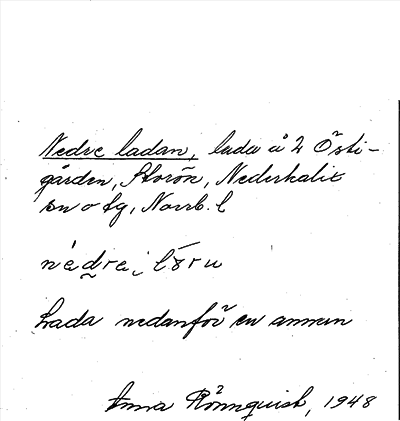 Nedre ladan, lada å 2 Östi-
gården, Storön, Nederkalix
sn o tg, Norrb. l
nèdrei lšru
Lada nedanför en annan
Anna Rönnquist, 1948